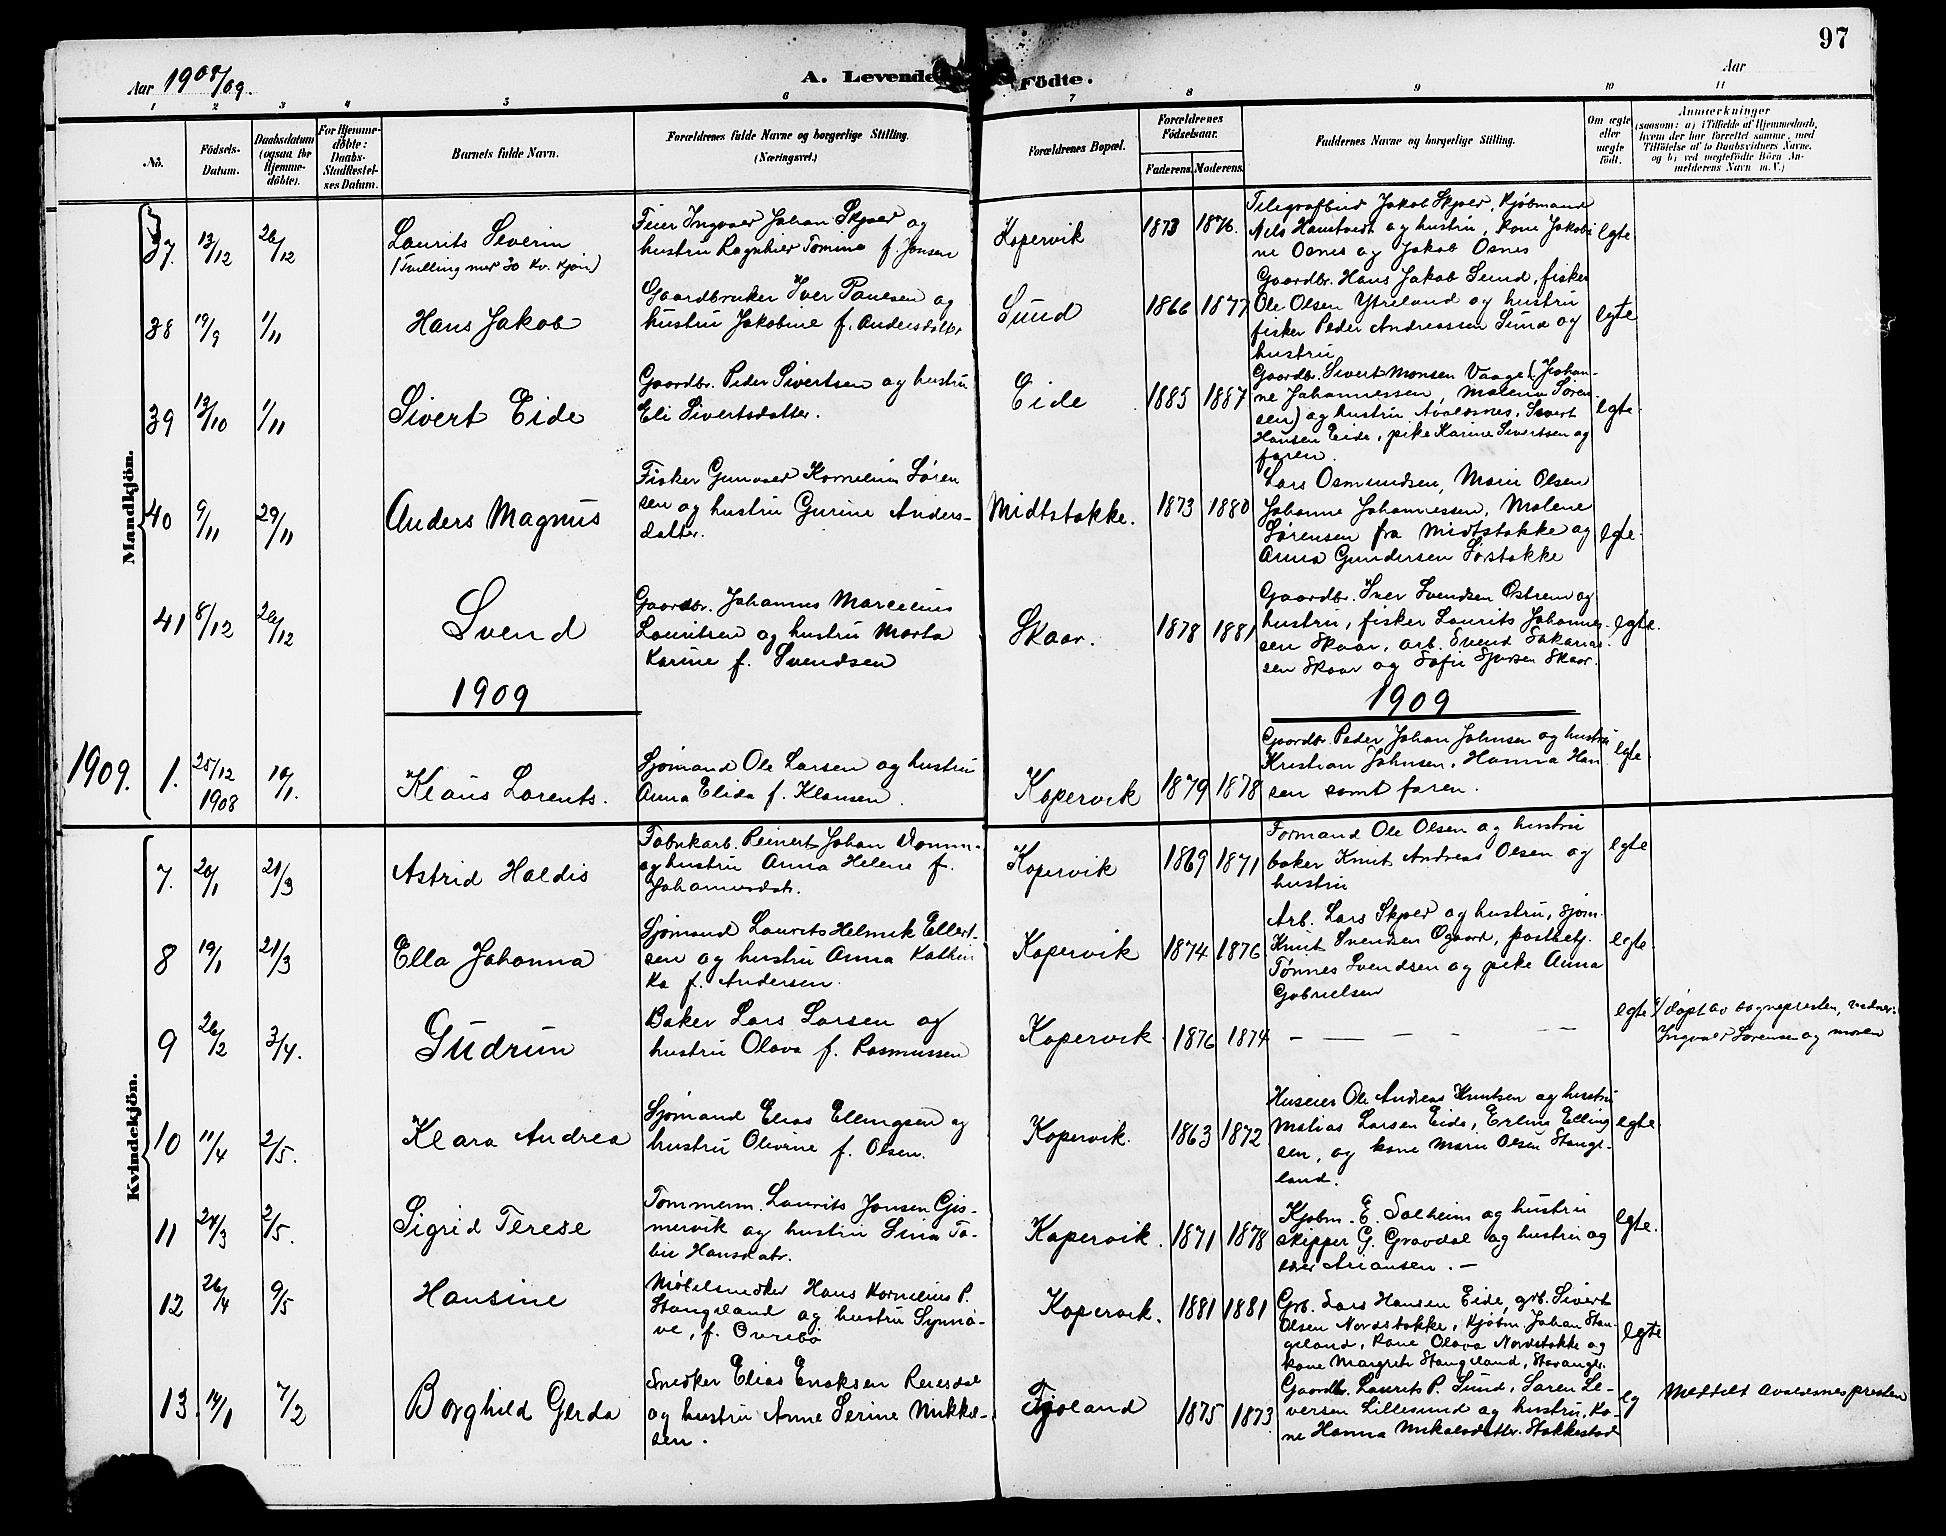 97
Aar 1908/09.
A. Levende Födte.
Aar
1 2 3 4 5 6 7 8 9 10 11
No.
Födsels-
Datum.
Daabsdatum
(ogsaa for
Hjemme-
döbte).
For Hjemme-
döbte:
Daabs-
Stadfæstel-
ses Datum.
Barnets fulde Navn.
Forældrenes fulde Navne og borgerlige Stilling.
(Næringsvei.)
Forældrenes Bopæl.
Forældrenes
Födselsaar.
Faderens. Moderens.
Faddernes Navne og borgerlige Stilling.
Om ægte
eller
uægte
født.
Anmærkninger
(saasom: a) i Tilfælde af Hjemmedaab,
hvem der har forrettet samme, med
Tilföielse af to Daabsvidners Navne,
og b) ved uægtefödte Börn An-
melderens Navn m. V.)
Mandkjön.
37. 13/12 26/12
Laurits Severin
(Tvilling med 30 Kv. Kjön)
Feier Ingvald Johan Skjold og
hustru Ragnhild Tomine f. Jonsen
Kopervik
1873 1876.
Telegrafbud Jakob Skjold, Kjøbmand
Nils Hamtvedt og hustru, kone Jakobi-
ne Osnes og Jakob Osnes
egte
38 19/9 1/11
Hans Jakob
Gaardbruker Iver Paulsen og
hustru Jakobine f. Andersdatter
Sund
1866 1877
Gaardbr. Hans Jakob Sund, fisker
Ole Olsen Ytreland og hustru
fisker Peder Andreassen Sund og
hustru
egte
39 13/10 1/11
Sivert Eide
Gaardbr. Peder Sivertsen og hustru
Eli Sivertsdatter.
Eide
1885 1887
Gaardbr. Sivert Monsen Vaage (Johan-
ne Johannessen, Malena Søren-
sen) og hustru Avaldsnes, Sivert
Hansen Eide, pike Karine Sivertsen og
faren.
egte.
40 9/11 29/11
Anders Magnus
Fisker Gunvald Kornelius Søren
sen og hustru Gurine Anders-
datter.
Midtstokke.
1873 1880
Lars Osmundsen, Marie Olsen
Johanne Johannessen, Malene
Sørensen fra Midtstokke og
Anna Gundersen Sørstokke
egte.
41 8/12 26/12
Svend
Gaardbr. Johannes Marcelius
Lauritsen og hustru Marta
Karine f. Svendsen
Skaar.
1878 1881
Gaardbr. Iver Svendsen Østrem og
hustru, fisker Laurits Johannes-
sen Skaar, arb. Svend Sakarias-
sen Skaar og Sofie Sjursen Skaar.
egte.
1909
1909
1909. 1. 25/12 1908 10/1.
Klaus Lorents.
Sjømand Ole Larsen og hustru
Anna Elida f. Klausen.
Kopervik
1879 1878
Gaardbr. Peder Johan Johnsen og hustru
Kristian Johnsen, Hanna Han
sen samt faren.
egte.
Kvindekjön.
7. 20/1 21/3
Astrid Haldis
Fabrikarb. Reinert Johan
og hustru Anna Helene f.
Johannesdtr.
Kopervik
1869 1871
Formand Ole Olsen og hustru
baker Knut Andreas Olsen og
hustru
egte
8 19/1 21/3
Ella Johanna
Sjømand Laurits Helmik Ellert-
sen og hustru Anna Kathin
ka f. Andersen.
Kopervik
1874 1876
Arb. Lars Skjold og hustru, sjøm.
Knut Svendsen Øgaard, postbetj.
Tønnes Svendsen og pike Anna
Gabrielsen
egte.
9 26/2 3/4.
Gudrun
Baker Lars Larsen og
hustru Olava f. Rasmussen
Kopervik
1876 1874
— — — — —
egte
døpt av sognepresten, vidner:
Ingvald Sørensen og moren
10 11/4 2/5.
Klara Andrea
Sjømand Elias Ellingsen og
hustru Olivine f. Olsen.
Kopervik.
1863 1872
Huseier Ole Andreas Knutsen og hustru
Matias Larsen Eide, Erling Elling
sen, og kone Marie Olsen Stange-
land.
egte
11 24/3 2/5.
Sigrid Terese
Tømmerm. Laurits Jonsen Gis-
mervik og hustru Sina To-
bie Hansdatr.
Kopervik.
1871 1878
Kjøbm. E. Solheim og hustru
skipper G. Gravdal og hustru og
Ariansen. —
egte.
12 26/4 9/5
Hansine
Møbelsnedker Hans Kornelius P.
Stangeland og hustru Synnø-
ve, f. Øvrebø
Kopervik.
1881 1881
Grb. Lars Hansen Eide, grb. Sivert
Olsen Nordstokke, Kjøbm. Johan Stan-
geland, Kone Olava Nordstokke og
kone Margrete Stangeland, Stavanger.
egte
13. 14/1 7/2
Borghild Gerda
Snedker Elias Enoksen Reiesdal
og hustru Anne Serine Mikkel-
sen.
Fjoland
1875 1873
Gaardb. Laurits P. Sund, Søren Le-
versen Lillesund og hustru, Ko-
ne Hanna Mikalsdatter. Stokkestad
eg
Meddelt Avaldsnespresten